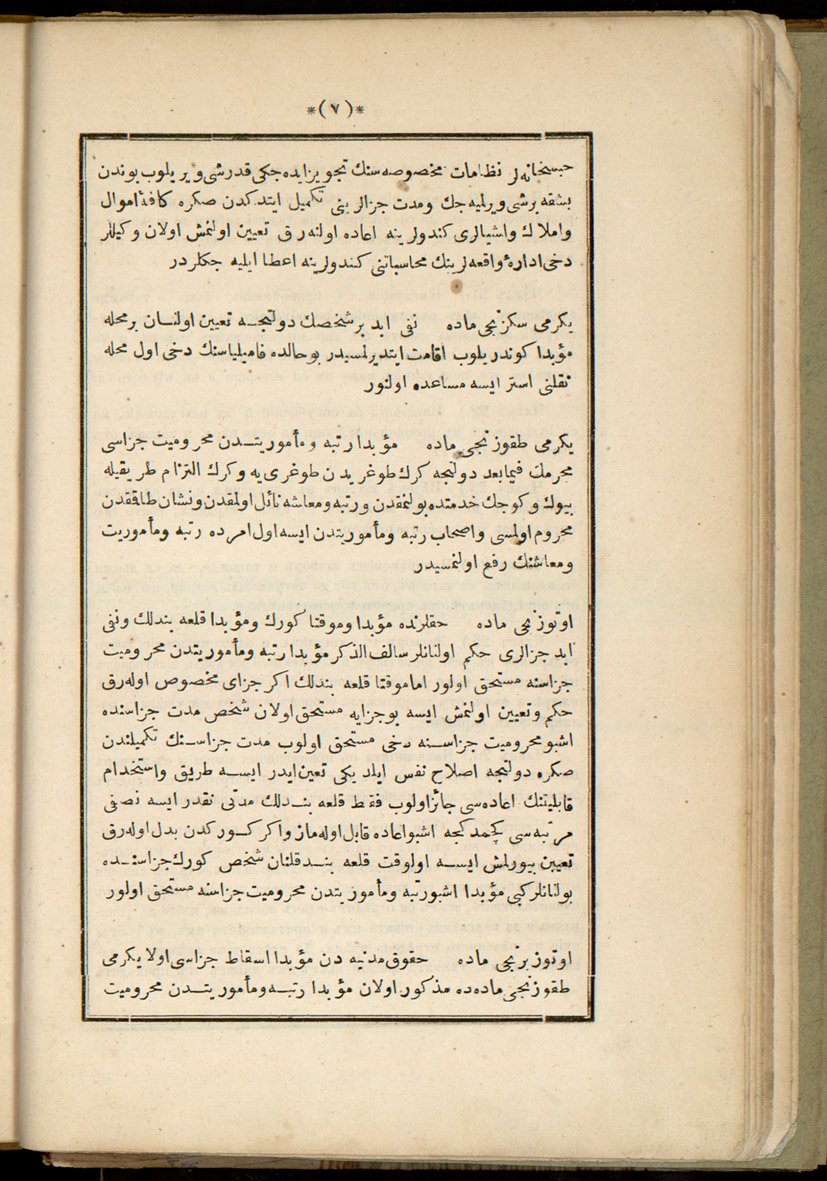 *(٧)*
حبسخانه لر نظامات مخصوصه سنك تجويز ايده جكى قدر شى ويريلوب بوندن
بشقه برشى ويرلميه جك ومدت جزالرينى تكميل ايتدكدن صكره كافۀ اموال
واملاك واشيالرى كندولرينه اعاده اولنه رق تعيين اولنمش اولان وكيللر
دخى ادارۀ واقعه لرينك محاسباتنى كندولرينه اعطا ايليه جكلردر
يكرمى سكزنجى ماده نفى ابد بر شخصك دولتجه تعيين اولنان بر محله
مؤبدا كوندريلوب اقامت ايتديرلمسيدر بوحالده فاميلياسنك دخى اول محله
نقلنى استر ايسه مساعده اولنور
يكرمى طقوزنجى ماده مؤبدا رتبه ومأموريتدن محروميت جزاسى
مجرمك فيمابعد دولتجه كرك طوغريدن طوغرى يه وكرك التزام طريقيله
بيوك وكوچك خدمتده بولنمقدن ورتبه ومعاشه نائل اولمقدن ونشان طاقمقدن
محروم اولمسى واصحاب رتبه ومأموريتدن ايسه اول امرده رتبه ومأموريت
ومعاشنك رفع اولنمسيدر
اوتوزنجى ماده حقلرنده مؤبدا وموقتا كورك ومؤبدا قلعه بندلك ونفى
ابد جزالرى حكم اولنانلر سالف الذكر مؤبدا رتبه ومأموريتدن محروميت
جزاسنه مستحق اولور اما موقتا قلعه بندلك اكر جزاى مخصوص اوله رق
حكم وتعيين اولنمش ايسه بوجزايه مستحق اولان شخص مدت جزاسنده
اشبو محروميت جزاسنه دخى مستحق اولوب مدت جزاسنك تكميلندن
صكره دولتجه اصلاح نفس ايلديكى تعين ايدر ايسه طريق واستخدام
قابليتنك اعاده سى جائز اولوب فقط قلعه بندلك مدتى نقدر ايسه نصفى
مرتبه سى كچمدكجه اشبو اعاده قابل اوله ماز واكر كوركدن بدل اوله رق
تعيين بيورلمش ايسه اولوقت قلعه بند قلنان شخص كورك جزاسنده
بولنانلر كبى مؤبدا اشبو رتبه ومأموريتدن محروميت جزاسنه مستحق اولور
اوتوز برنجى ماده حقوق مدنيه دن مؤبدا اسقاط جزاسى اولا يكرمى
طقوزنجى ماده ده مذكور اولان مؤبدا رتبه ومأموريتدن محروميت